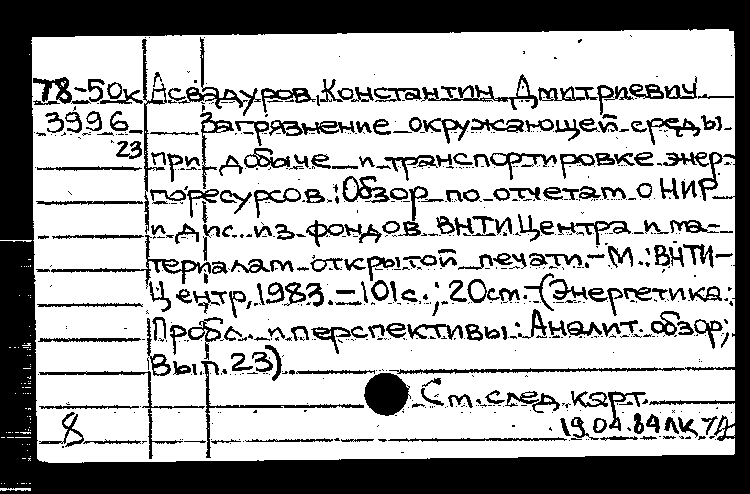 78-50к Асвадуров, Константин Дмитриевич.
3996 Загрязнение окружающей среды
23 при добыче и транспортировке энер-
горесурсов: Обзор по отчетам о НИР
и дис. из фондов ВНТИЦентра и ма-
териалам открытой печати.-М.:ВНТИ-
Центр, 1983.-101с.; 20см.-(Энергетика:
Пробл. и перспективы: Аналит. обзор;
Вып. 23).
См. след. карт.
8 19.04.84 ЛК